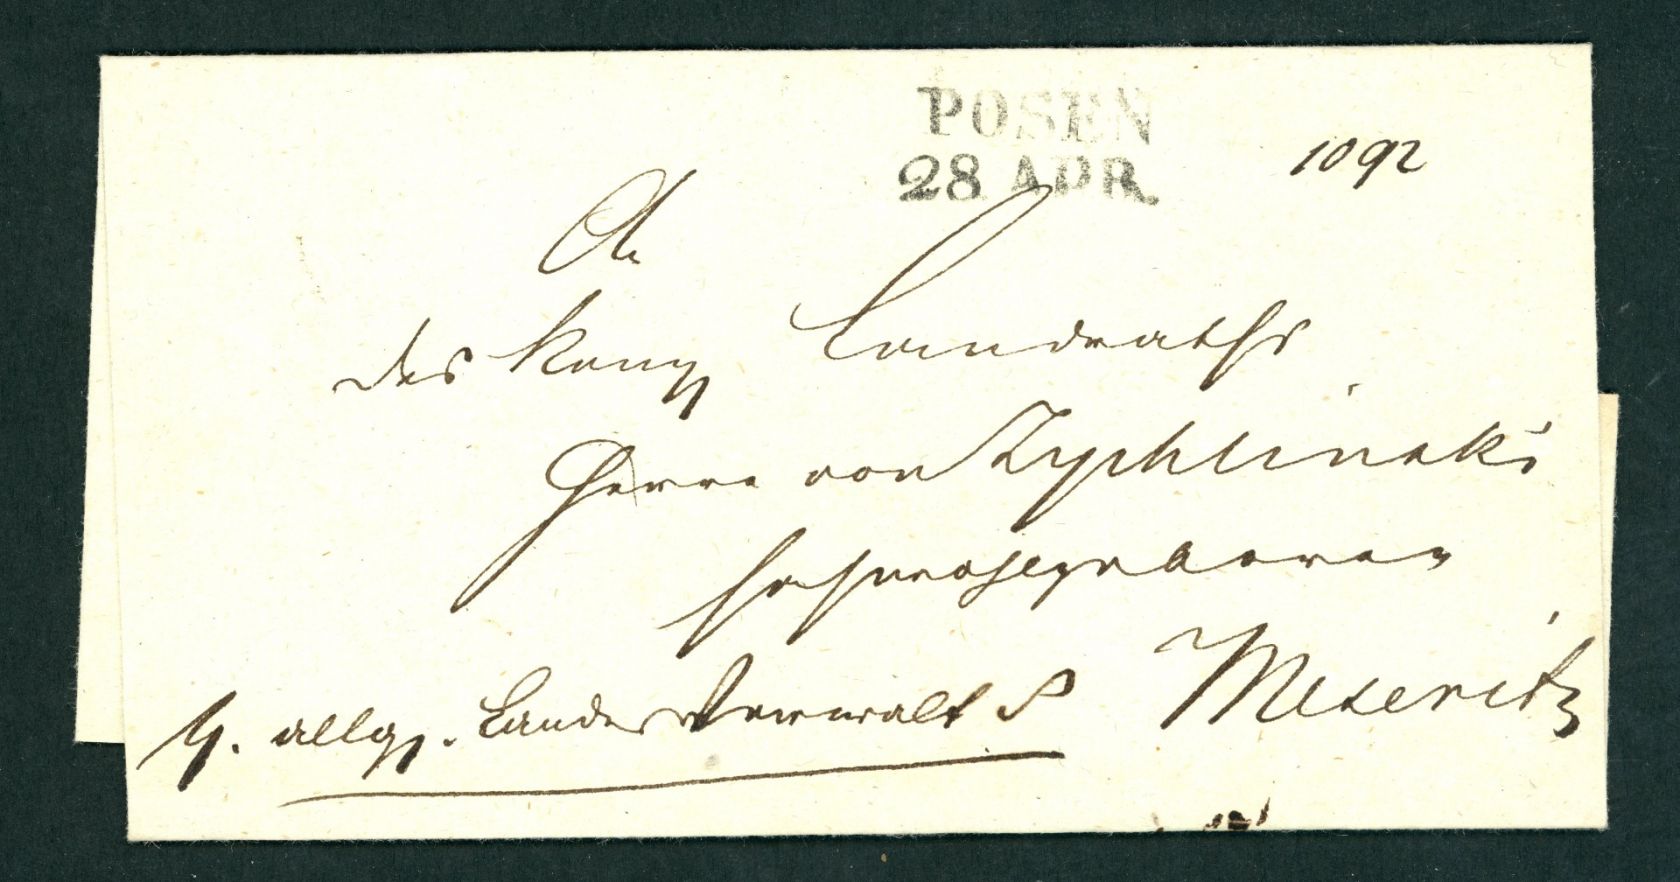 POSEN
28 APR.
1092
An
des König Landraths
Herrn von Zychlinski
Hochwohlgeboren
Meseritz
H. allg. Landes Verwalt S